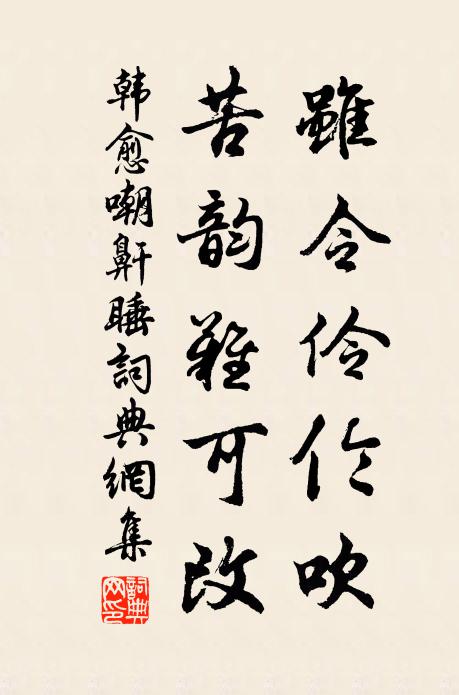 雖令伶伦吹
苦韵難可改
韩愈嘲鼾睡詞典網集
詞典
网印